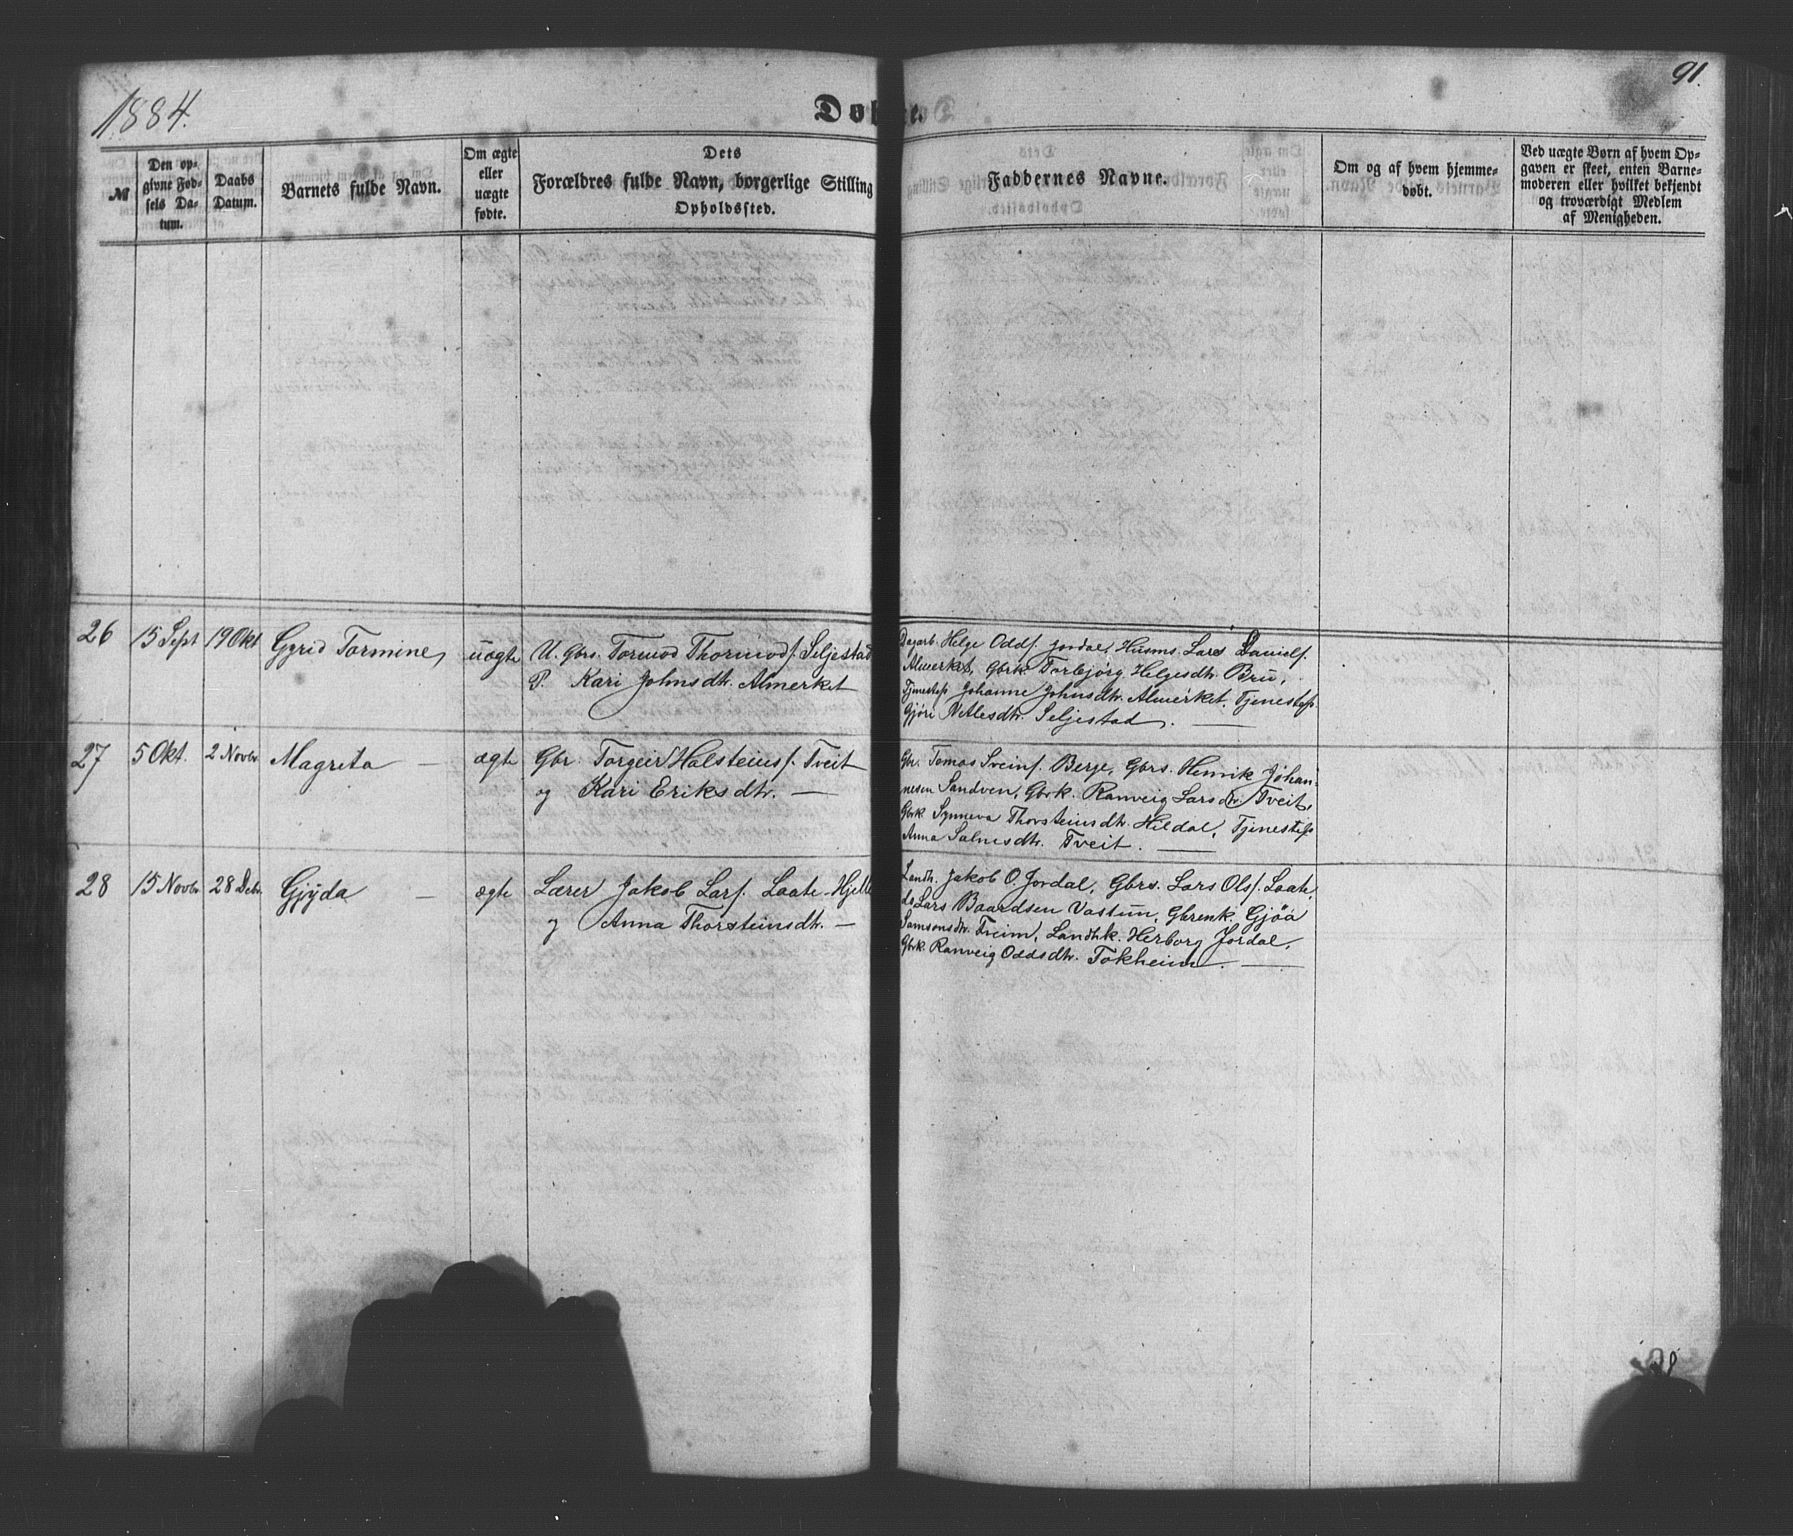 1884.
Døbte.
91.
№
Den op-
givne Fød-
sels Da-
tum.
Daabs
Datum.
Barnets fulde Navn.
Om ægte
eller
uægte
fødte.
Dets
Forældres fulde Navn, borgerlige Stilling
Opholdssted.
Faddernes Navne.
Om og af hvem hjemme-
døbt.
Ved uægte Børn af hvem Op-
gaven er skeet, enten Barne-
moderen eller hvilket bekjendt
og troværdigt Medlem
af Menigheden.
26 15 Sept 19 Okt Gyrid Tormine, uægte U. Gbrs. Tormod Thormods. Seljestad
P. Kari Johnsdtr. Almerket
Dagarb. Helge Odds. Jordal, Husms. Lars Daniels.
Almerket, Gbrk. Torbjørg Helgesdtr. Bru,
Tjenestep. Johanne Johnsdtr. Almerket, Tjenestep.
Gjøri Vetlesdtr. Seljestad.
27 5 Okt. 2 Novbr. Magreta – ægte Gbr. Torgeir Halsteins. Tveit
og Kari Eriksdtr. —
Gbr. Tomas Sveins. Berje, Gbrs. Henrik Johan-
nesen Sandven, Gbrk. Ranveig Larsdtr Tveit,
Gbrk Synneva Thorsteinsdtr. Hildal, Tjenestep.
Anna Salmesdtr. Tveit. —
28 15 Novbr. 28 Debr. Gjyda – ægte Lærer Jakob Lars. Laate-Hjelle
og Anna Thorsteinsdtr. —
Landh. Jakob O. Jordal, Gbrs. Lars Ols. Laate,
do Lars Baardsen Vastun, Gbrenk. Gjøa
Samsonsdtr. Freim, Landhk. Herborg Jordal,
Gbrk. Ranveig Oddsdtr. Tokheim. —